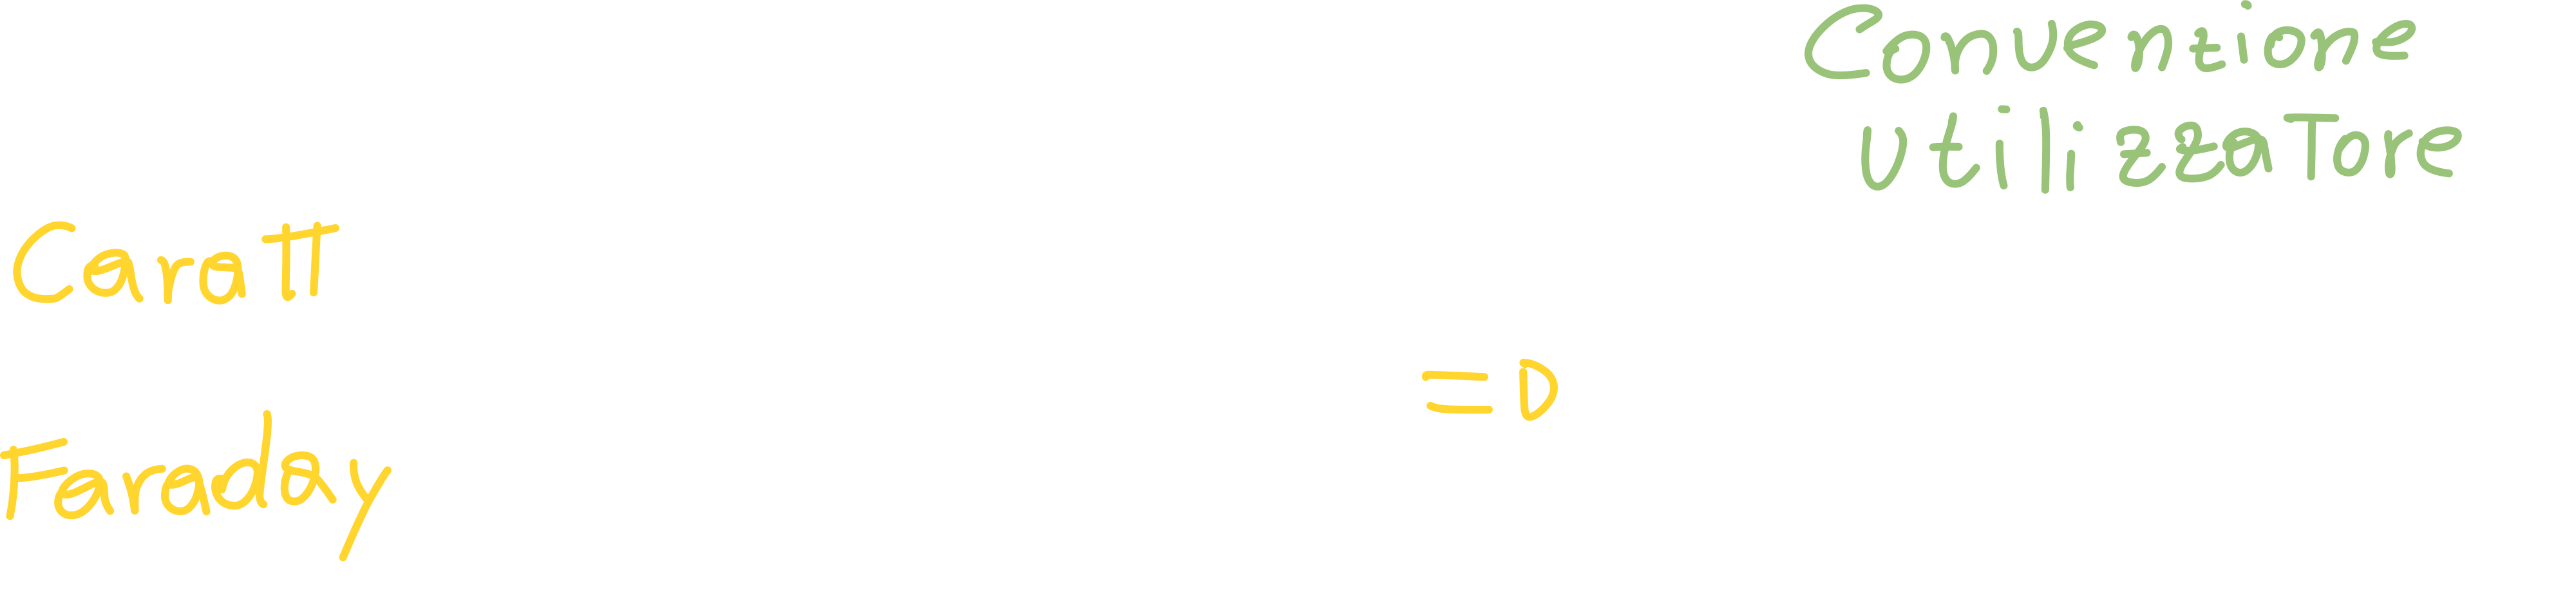 Conventione
utilizzaTore
Caratt
=D
Faraday